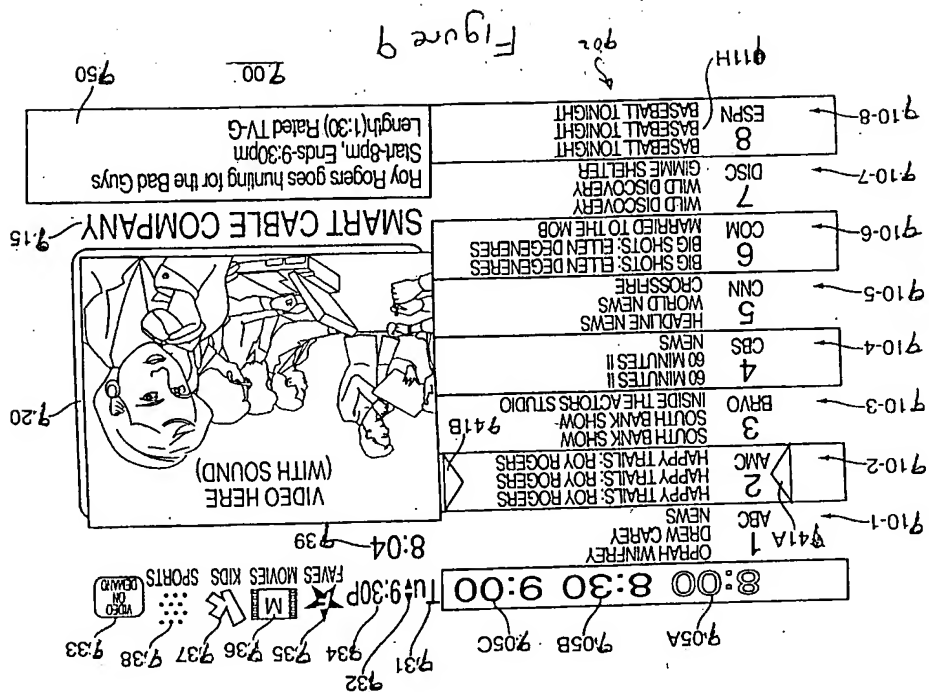 9.31 9.32 9.34 9.35 9.36 9.37 9.38 9.33
9.05A 9.05B 9.05C
8:00 8:30 9:00
Tu 9:30P
FAVES MOVIES KIDS SPORTS
M
VIDEO ON DEMAND
8:04 9.39
9.10-1
1 ABC
OPRAH WINFREY
DREW CAREY
NEWS
941A
9.10-2
2 AMC
HAPPY TRAILS: ROY ROGERS
HAPPY TRAILS: ROY ROGERS
HAPPY TRAILS: ROY ROGERS
941B
9.10-3
3 BRVO
SOUTH BANK SHOW
SOUTH BANK SHOW
INSIDE THE ACTORS STUDIO
9.10-4
4 CBS
60 MINUTES II
60 MINUTES II
NEWS
910-5
5 CNN
HEADLINE NEWS
WORLD NEWS
CROSSFIRE
910-6
6 COM
BIG SHOTS: ELLEN DEGENERES
BIG SHOTS: ELLEN DEGENERES
MARRIED TO THE MOB
9.10-7
7 DISC
WILD DISCOVERY
WILD DISCOVERY
GIMME SHELTER
9.10-8
8 ESPN
BASEBALL TONIGHT
BASEBALL TONIGHT
BASEBALL TONIGHT
911H
VIDEO HERE
(WITH SOUND)
9.20
SMART CABLE COMPANY
9.15
Roy Rogers goes hunting for the Bad Guys
Start-8pm, Ends-9:30pm
Length(1:30) Rated TV-G
902
9.00
9.50
Figure 9